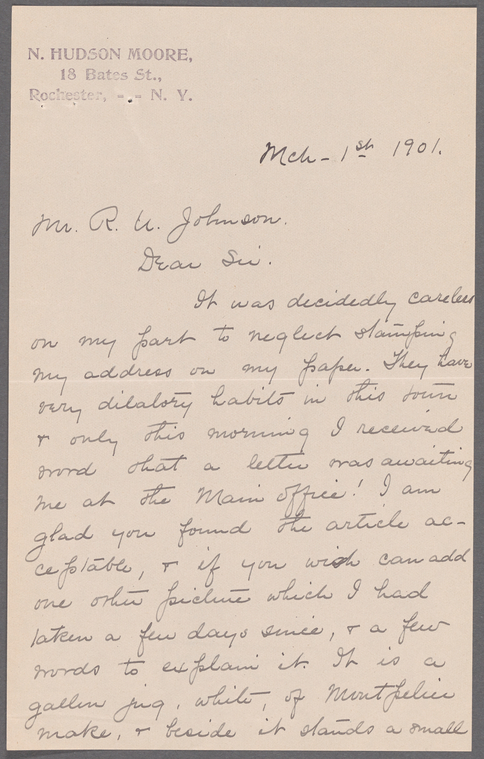 N. HUDSON MOORE,
18 Bates St.,
Rochester, - - N. Y.
Mch - 1st 1901.
Mr. R. U. Johnson.
Dear Sir.
It was decidedly careless
on my part to neglect stamping
my address on my paper. They have
very dilatory habits in this town
& only this morning I received
word that a letter was awaiting
me at the Main office! I am
glad you found the article ac-
ceptable, & if you wish can add
one other picture which I had
taken a few days since, & a few
words to explain it. It is a
gallon jug, white, of Montpelier
make, & beside it stands a small